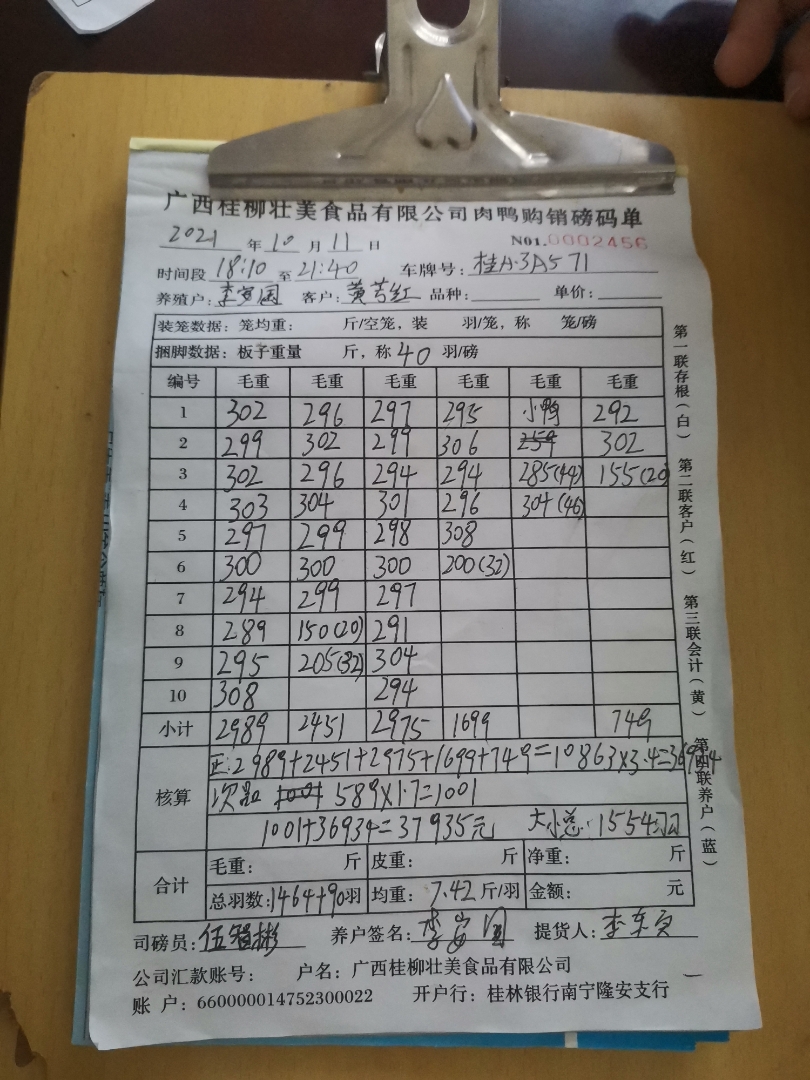 广西桂柳壮美食品有限公司肉鸭购销磅码单
2021 年 10 月 11 日 N01.0002456
时间段 18:10 至 21:40 车牌号: 桂A·3A571
养殖户: 李安国 客户: 黄吉红 品种: 单价:
装笼数据: 笼均重: 斤/空笼, 装 羽/笼, 称 笼/磅
捆脚数据: 板子重量 斤, 称 40 羽/磅
编号 毛重 毛重 毛重 毛重 毛重 毛重
1 302 296 297 295 小鸭 292
2 299 302 299 306 259 302
3 302 296 294 294 285(44) 155(20)
4 303 304 301 296 304(46)
5 297 299 298 308
6 300 300 300 200(32)
7 294 299 297
8 289 150(20) 291
9 295 205(32) 304
10 308 294
小计 2989 2451 2975 1699 749
核算
正:2989+2451+2975+1699+749=10863×3.4=36934
589×1.7=1001
1001+36934=37935元 大小总:1554
合计
毛重: 斤 皮重: 斤 净重: 斤
总羽数:1464+90羽 均重: 7.42 斤/羽 金额: 元
司磅员: 伍智彬 养户签名: 李安国 提货人:
公司汇款账号: 户名: 广西桂柳壮美食品有限公司
账 户: 660000014752300022 开户行: 桂林银行南宁隆安支行
第一联存根(白)
第二联客户(红)
第三联会计(黄)
第四联养户(蓝)